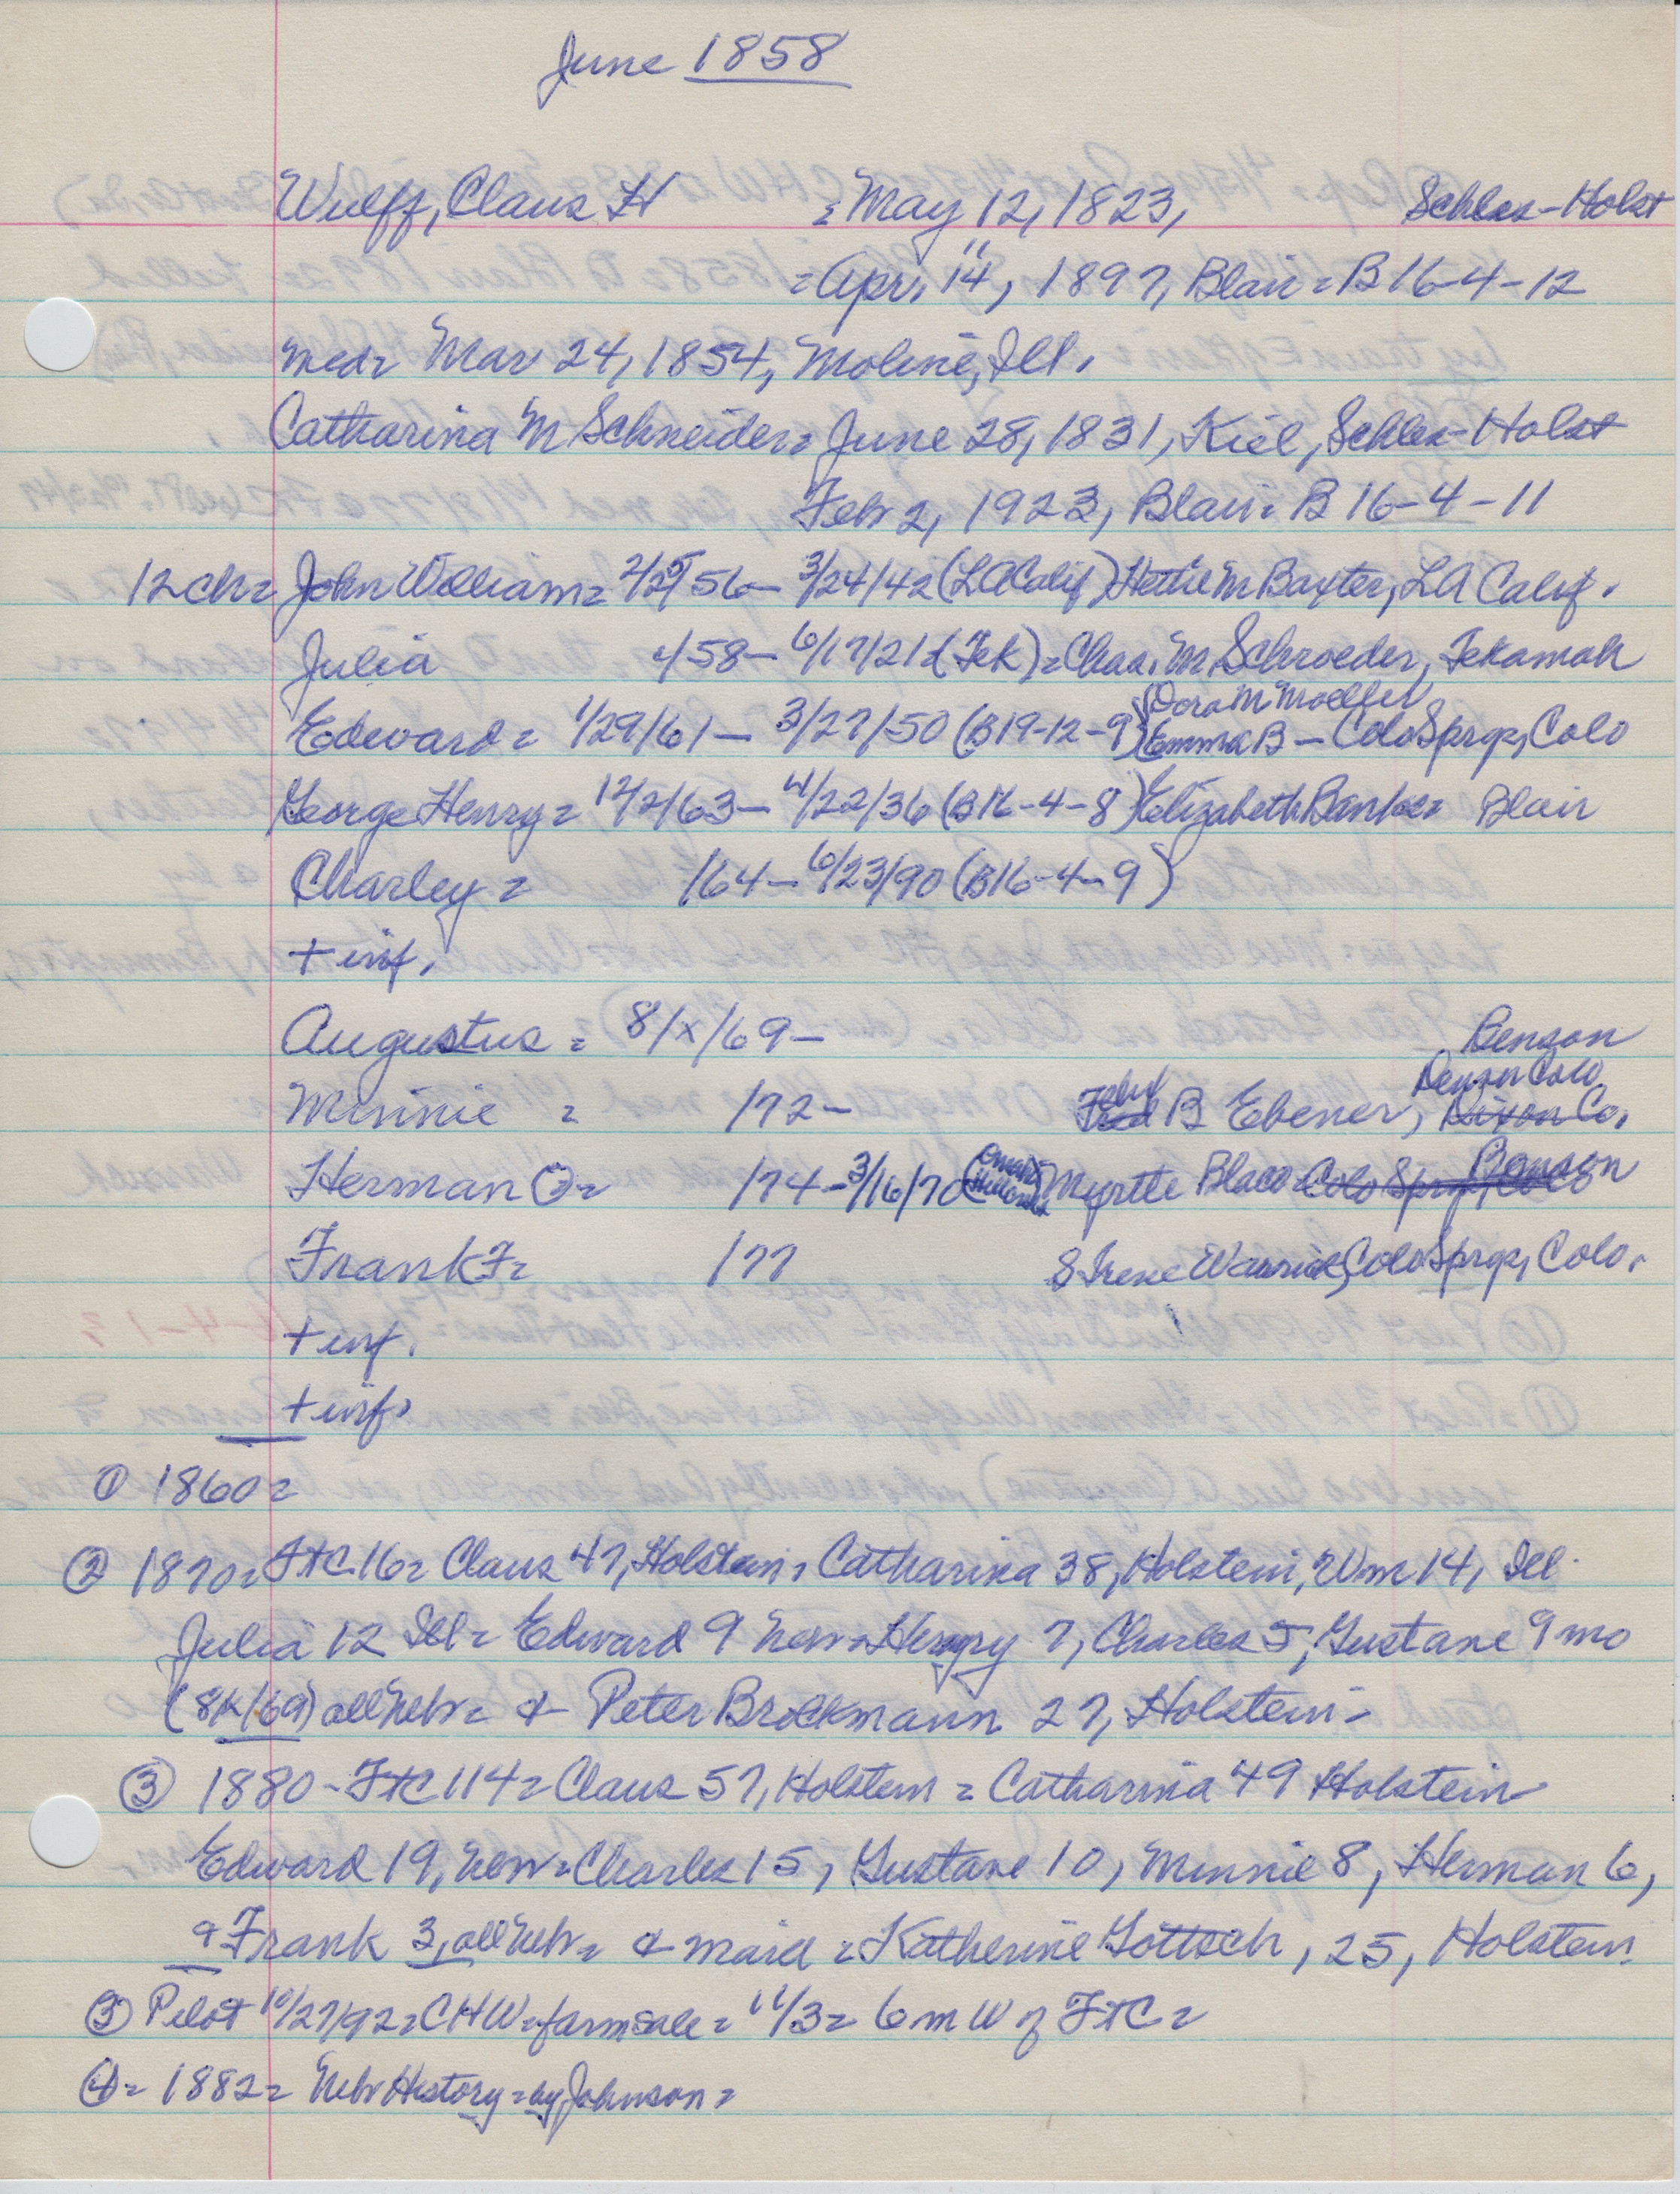 June 1858
Wulff, Claus H = May 12, 1823, Schles-Holst
= Apr. 14, 1897, Blair = B 16-4-12
med= Mar 24, 1854, Moline, Ill.
Catharina M Schneider= June 28, 1831, Kiel, Schles-Holst
Feb 2, 1923, Blair= B 16-4-11
12 ch= John William= 2/25/56 - 3/24/42 (LA Calif) Hettie M Baxter, LA Calif.
Julia 4/58 - 6/17/21 (Tek)= Chas. M. Schroeder, Tekamah
Dora M Moeller
Edward= 1/29/61 - 3/27/50 (B19-12-9) Emma B - Colo Sprgs, Colo
George Henry= 12/2/63 - 4/22/36 (B16-4-8) Elizabeth Banks= Blair
Charley= /64 - 6/23/90 (B16-4-9)
+ inf.
Augustus = 8/x/69 -
Benson
Denver Colo
Minnie = /72 - B Ebener, Dixon Co.
Herman O= /74 - 3/16/70 Myrtle Blaco Colo Sprgs, Colo Benson
Frank F= /77 S Irene Warrick, Colo Sprgs, Colo.
+ inf.
+ inf.
① 1860=
② 1870= FtC 16= Claus 47, Holstein, Catharina 38, Holstein, Wm 14, Ill.
Julia 12 Ill= Edward 9 Nebr= Henry 7, Charles 5, Gustave 9 mo
(8/x/69) all Nebr= & Peter Brockmann 27, Holstein-
③ 1880 - FtC 114= Claus 57, Holstein = Catharina 49 Holstein
Edward 19, Nebr= Charles 15, Gustave 10, Minnie 8, Herman 6,
& Frank 3, all Nebr= & maid = Katherine Gottsch, 25, Holstein.
③ Pilot 10/27/92= CHW= farm sale= 11/3= 6 m W of FtC=
④= 1882= Nebr History= by Johnson=